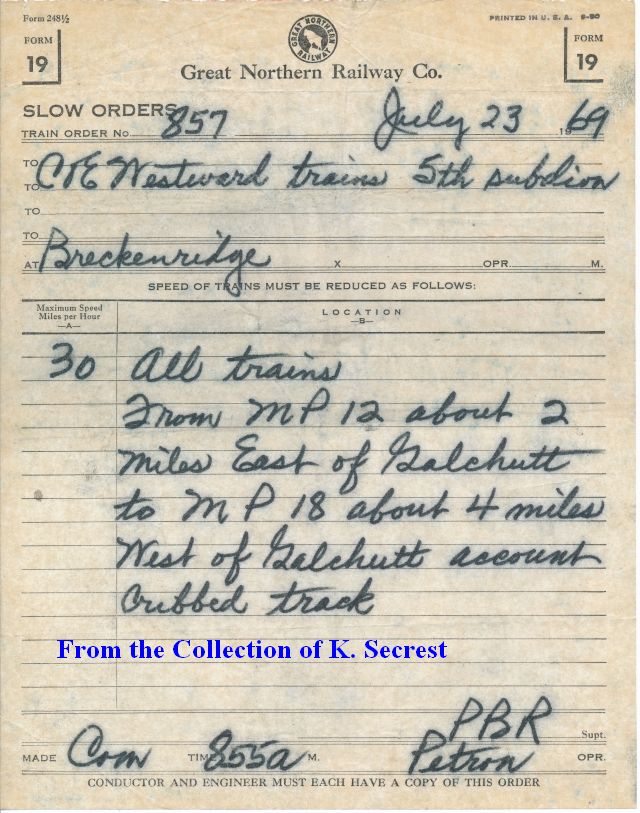 Form 248½
PRINTED IN U. S. A. 9-50
FORM 19
GREAT NORTHERN RAILWAY
FORM 19
Great Northern Railway Co.
SLOW ORDERS
TRAIN ORDER No. 857 July 23 1969
TO C&E Westward trains 5th subdion
TO
TO
TO
AT Breckenridge X OPR. M.
SPEED OF TRAINS MUST BE REDUCED AS FOLLOWS:
Maximum Speed Miles per Hour —A— LOCATION —B—
30 All trains
From MP 12 about 2
miles East of Galchutt
to MP 18 about 4 miles
West of Galchutt account
Cribbed track
From the Collection of K. Secrest
PBR Supt.
MADE Com TIME 855a M. Petron OPR.
CONDUCTOR AND ENGINEER MUST EACH HAVE A COPY OF THIS ORDER